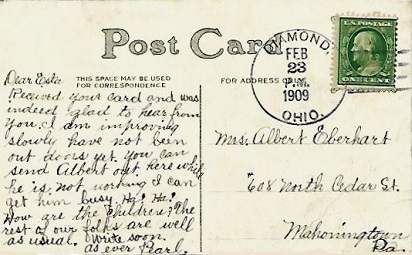 Post Card
THIS SPACE MAY BE USED
FOR CORRESPONDENCE
FOR ADDRESS ONLY
DIAMOND,
FEB
23
P.M.
1909
OHIO.
U.S. POSTAGE
ONE CENT
Dear Esta
Recieved your card and was
indeed glad to hear from
you. I am improving
slowly have not been
out doors yet. you can
send Albert out here while
he is not working I can
get him busy. Ha! Ha!
How are the children? The
rest of our folks are well
as usual. Write soon.
as ever Pearl.
Mrs. Albert Eberhart
608 North Cedar St.
Mahoningtown
Pa.